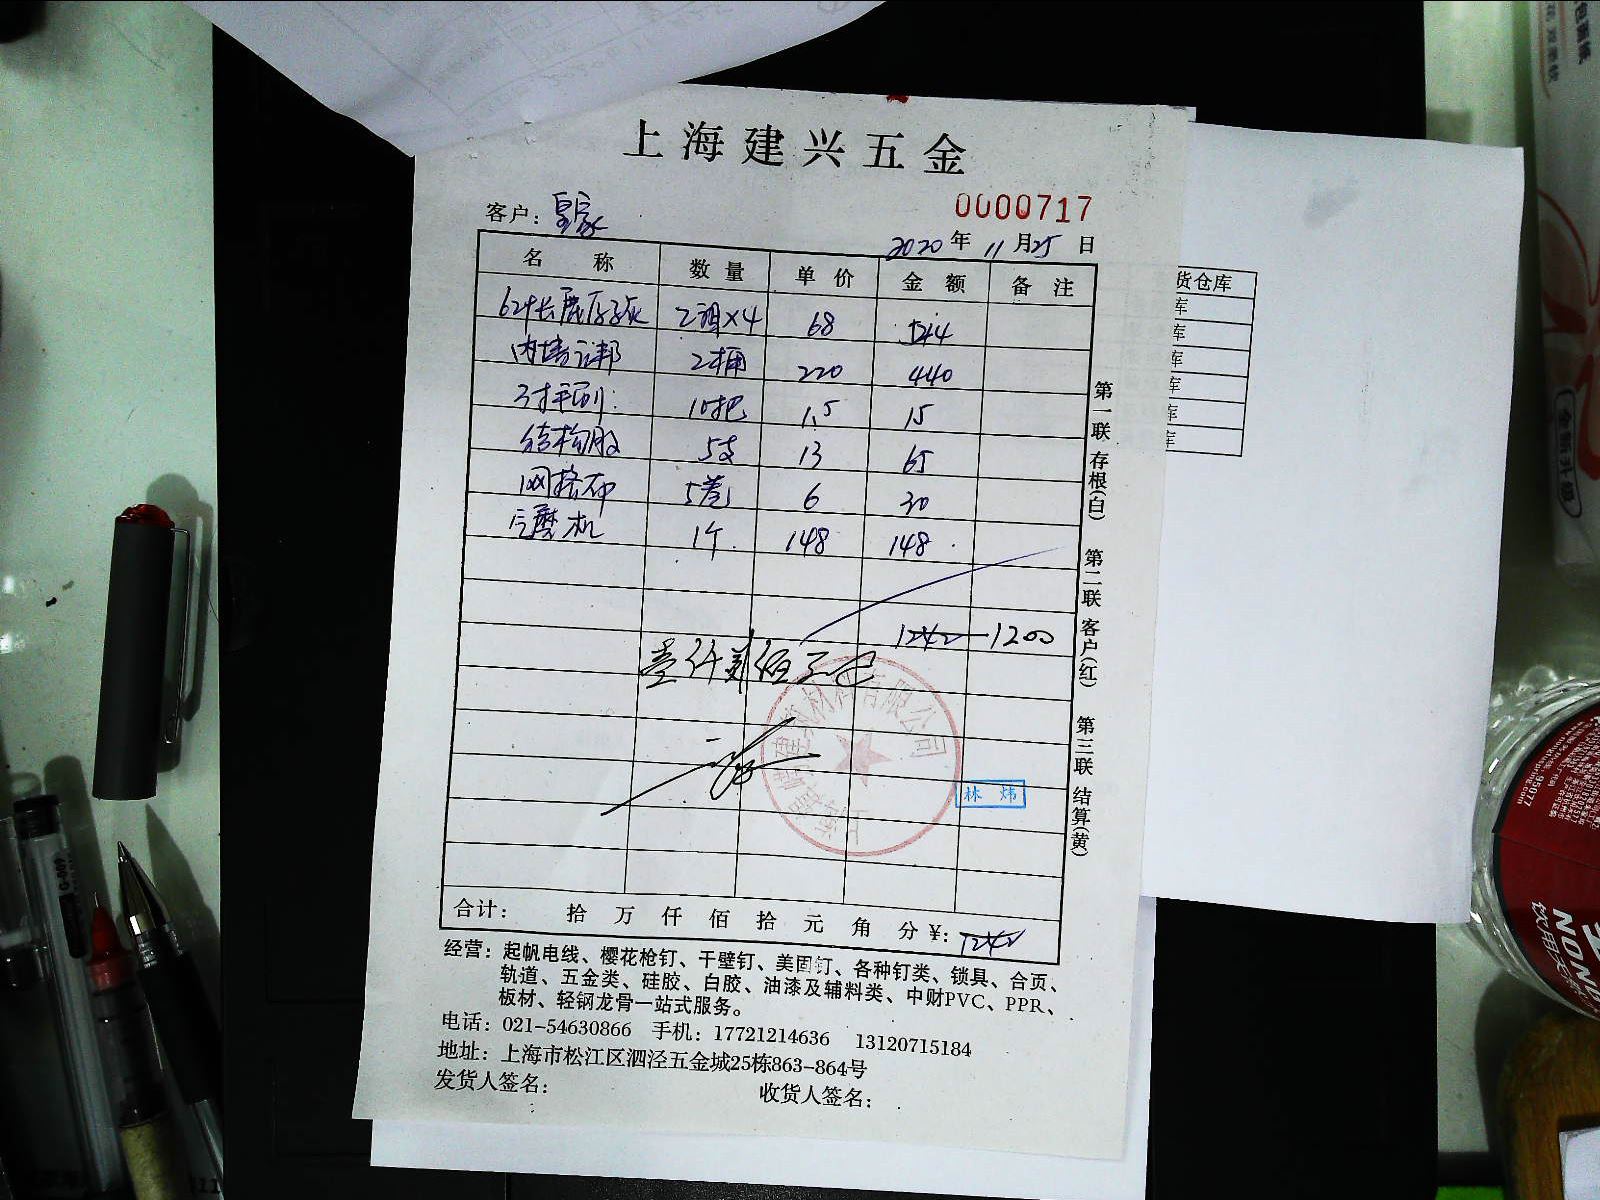 上海建兴五金
0000717
客户：皇家
2020年11月25日
名称 数量 单价 金额 备注
2 ×4 68 544
内墙 2桶 220 440
3寸毛刷 10把 1.5 15
结构胶 5支 13 65
网格布 5卷 6 30
磨机 1个 148 148
1242—1200
壹仟贰佰元正
林炜
合计： 拾 万 仟 佰 拾 元 角 分 ¥：1242
经营：起帆电线、樱花枪钉、干壁钉、美固钉、各种钉类、锁具、合页、
轨道、五金类、硅胶、白胶、油漆及辅料类、中财PVC、PPR、
板材、轻钢龙骨一站式服务。
电话：021-54630866 手机：17721214636 13120715184
地址：上海市松江区泗泾五金城25栋863-864号
发货人签名： 收货人签名：
第一联 存根(白) 第二联 客户(红) 第三联 结算(黄)
货仓库
库
库
库
库
库
库
95077
饮用